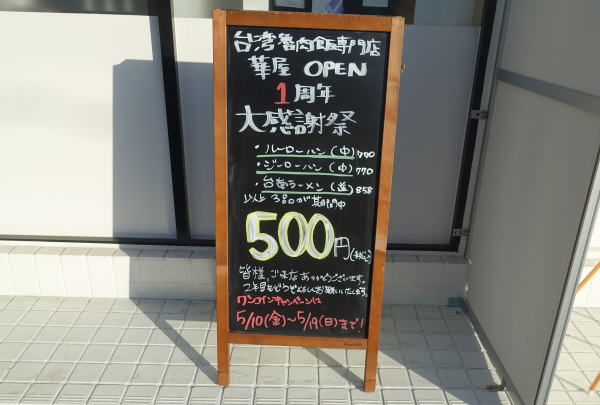 台湾魯肉飯専門店
華屋 OPEN
1周年
大感謝祭
・ルーローハン(中)770
・ジーローハン(中)770
・台南ラーメン(並)858
以上3品が期間中
500円(税込)
皆様、ご来店ありがとうございます。
2年目もどうぞよろしくお願いいたします。
ワンコインキャンペーンは
5/10(金)~5/19(日)まで!